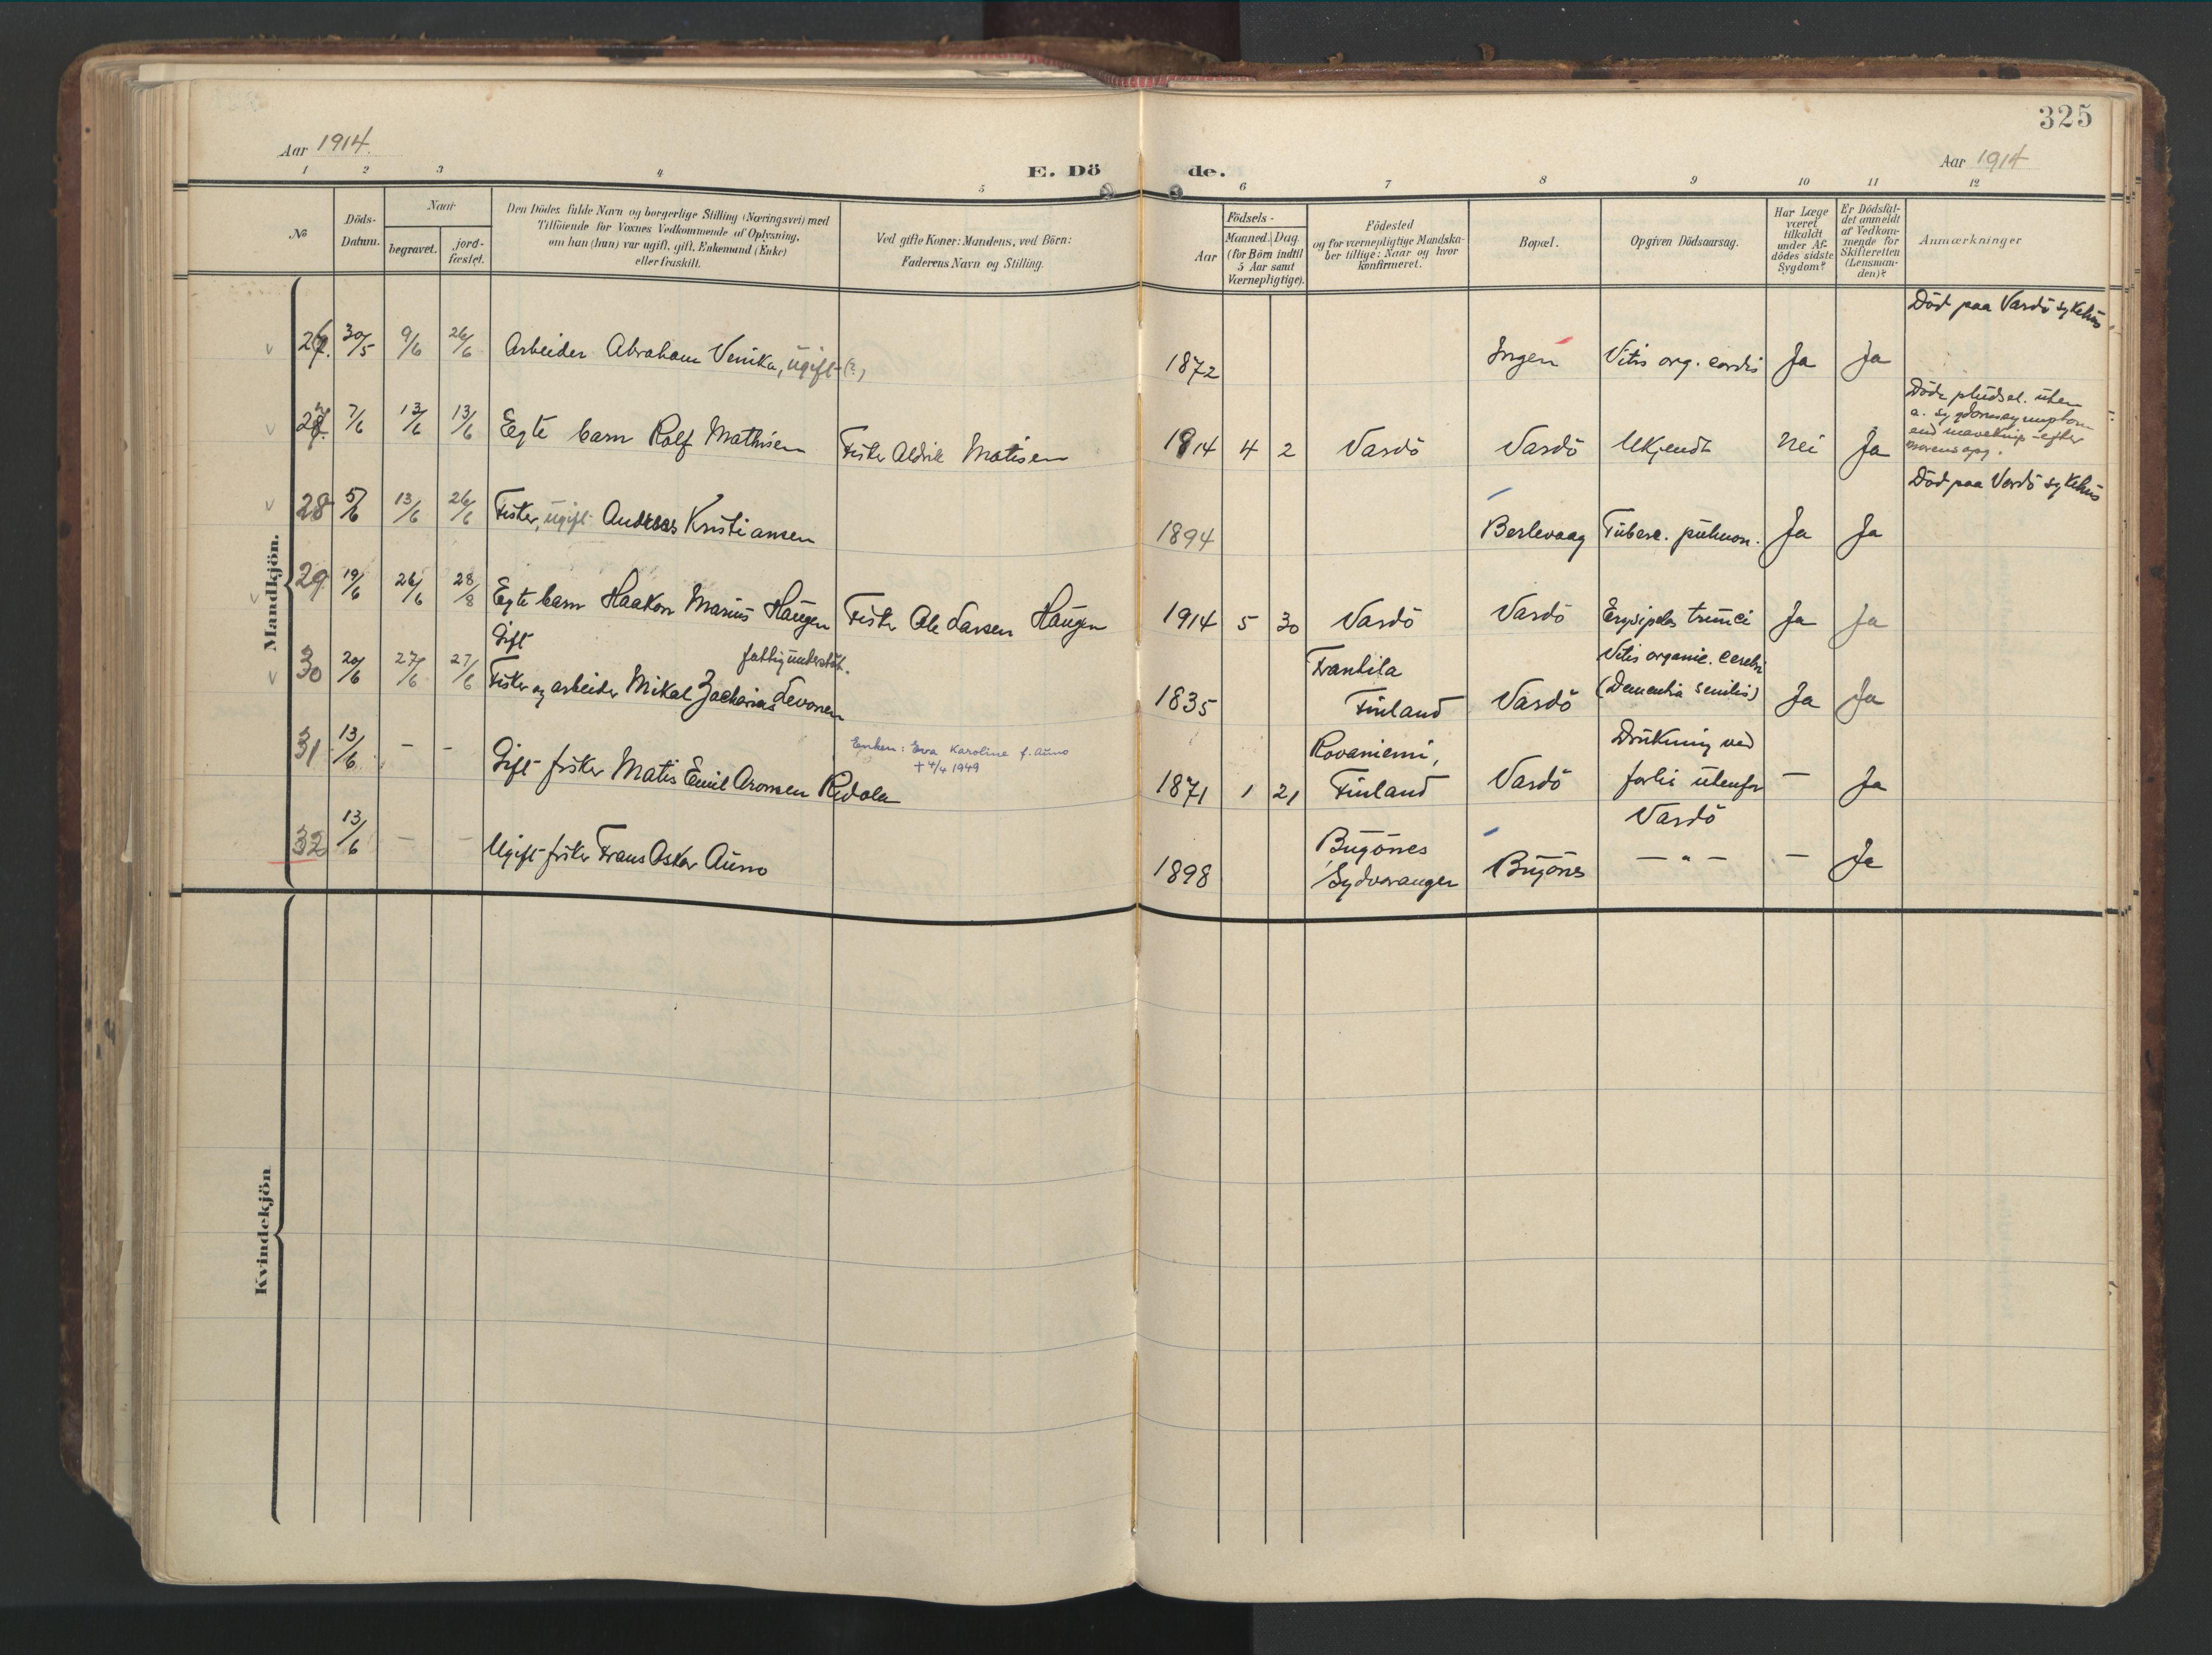 325
Aar 1914.
E. Döde.
Aar 1914
1 2 3 4 5 6 7 8 9 10 11 12
No
Döds-Datum.
Naar
begravet.
jord-fæstet.
Den Dödes fulde Navn og borgerlige Stilling (Næringsvei) med
Tilföiende for Voxnes Vedkommende af Oplysning,
om han (hun) var ugift, gift, Enkemand (Enke)
eller fraskilt.
Ved gifte Koner: Mandens, ved Börn:
Faderens Navn og Stilling.
Födsels-
Aar
Maaned. Dag.
(for Börn indtil
5 Aar samt
Værnepligtige).
Födested
og for værnepligtige Mandska-
ber tillige: Naar og hvor
konfirmeret.
Bopæl.
Opgiven Dödsaarsag.
Har Læge
været
tilkaldt
under Af-
dödes sidste
Sygdom?
Er Dödsfal-
det anmeldt
af Vedkom-
mende for
Skifteretten
(Lensman-
den)?
Anmærkninger
Mandkjön.
26. 30/5 9/6 26/6 Arbeider Abraham Venika, ugift (?) 1872 Ingen Vitis org. cordis Ja Ja Död paa Vardö sykehus
27. 7/6 13/6 13/6 Egte barn Rolf Mathisen Fisker Aldrik Matisen 1914 4 2 Vardö Vardö Ukjendt Nei Ja Döde pludsel. uten
a. sygdomssymptom
end maveknip efter
morens opg.
28 5/6 13/6 26/6 Fisker, ugift Andreas Kristiansen 1894 Berlevaag Tuberc. pulmon. Ja Ja Död paa Vardö sykehus
29 19/6 26/6 28/8 Egte barn Haakon Marius Haugen Fisker Ole Larsen Haugen 1914 5 30 Vardö Vardö Erysipelas trunci Ja Ja
30 20/6 27/6 27/6 Gift fattigunderstöt.
Fisker og arbeider Mikal Zacharias Levonen 1835 Frantila
Finland Vardö Vitis organic. cerebri
(Dementia senilis) Ja Ja
31 13/6 - - Gift fisker Matis Emil Aronsen Ridola Enken: Eva Karoline f. Auno
+ 4/4 1949 1871 1 21 Rovaniemi,
Finland Vardö Drukning ved
forlis utenfor
Vardö - Ja
32 13/6 - - Ugift fisker Frans Oskar Auno 1898 Bugönes
Sydvaranger Bugönes - " - - Ja
Kvindekjön